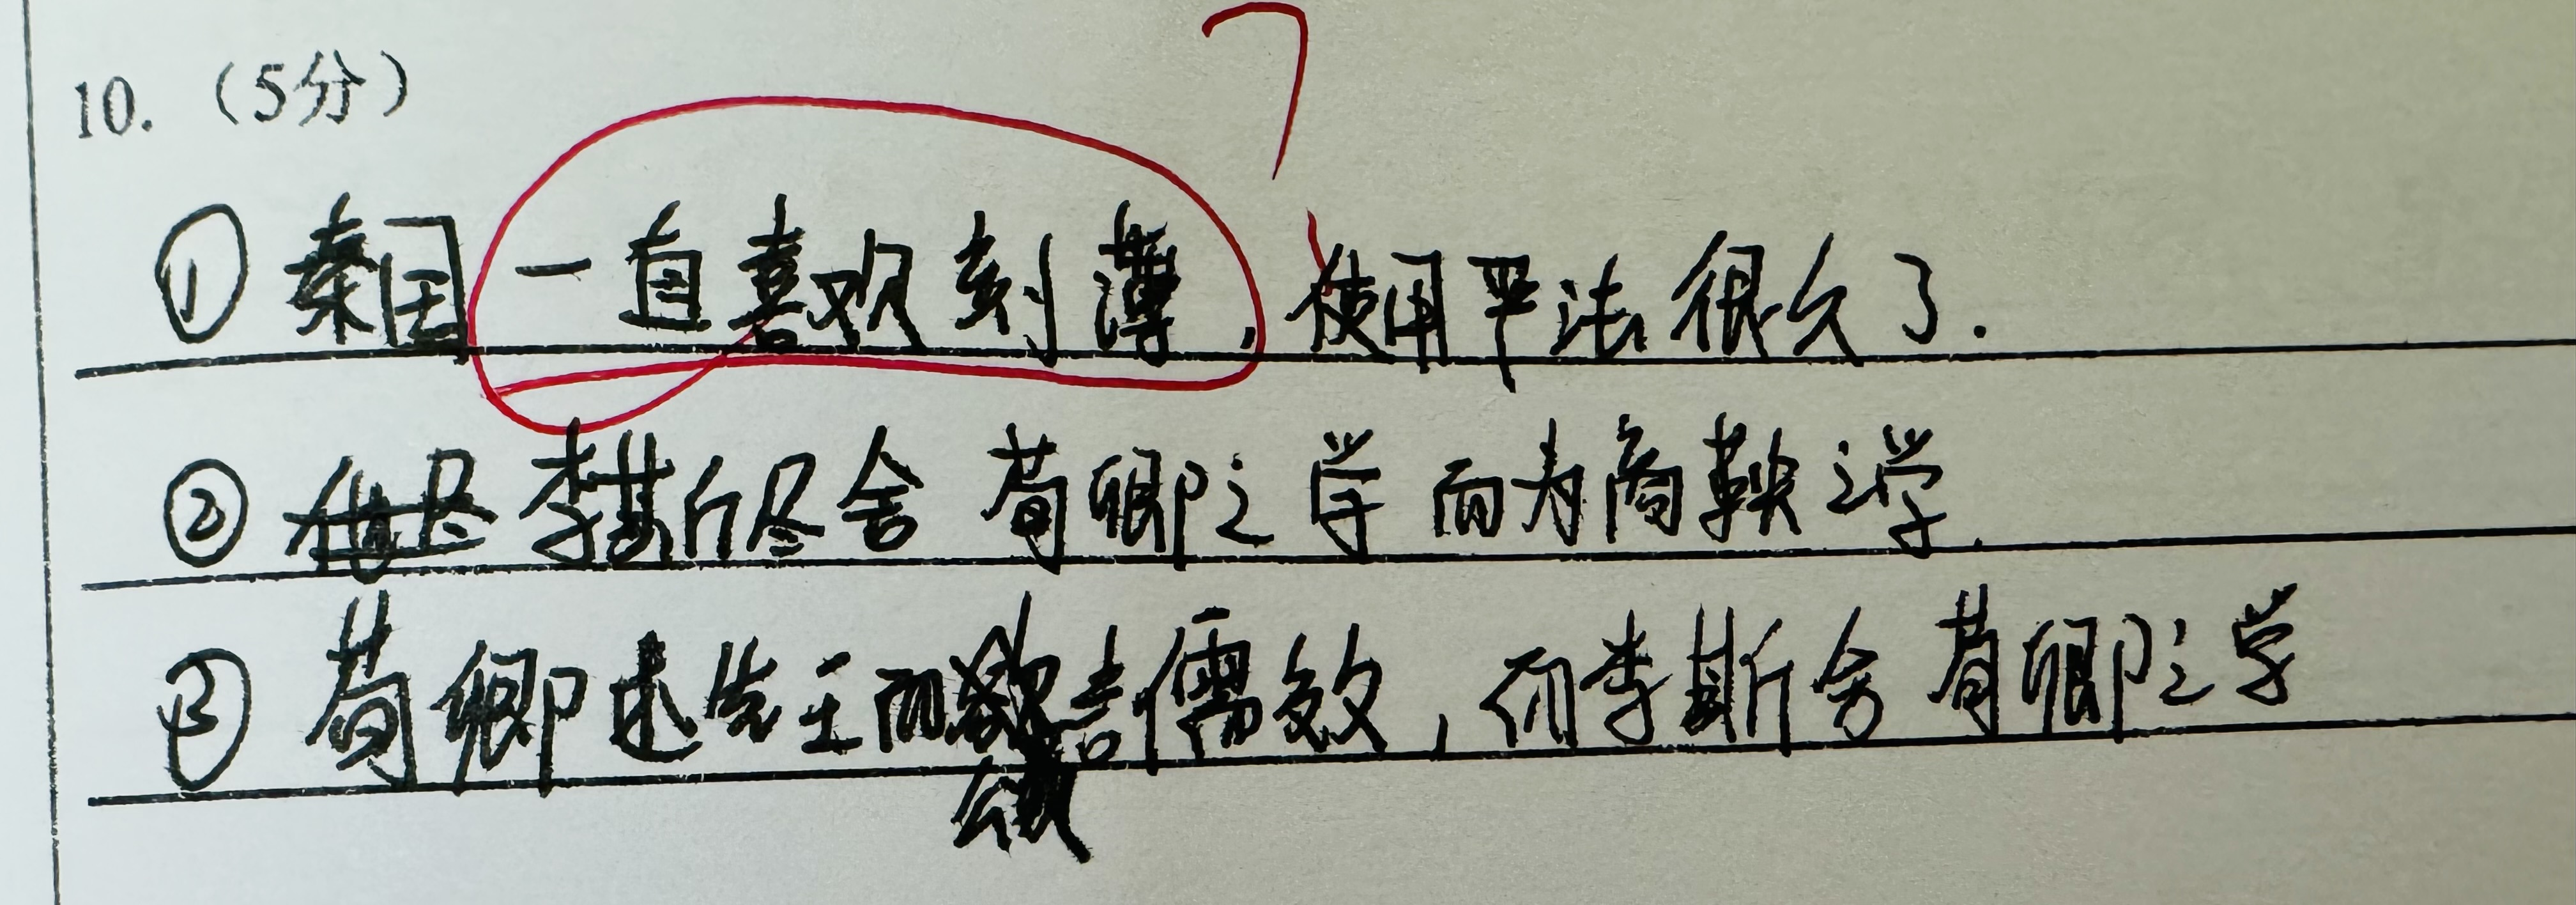 10.（5分）
① 秦国一直喜欢刻薄，使用严法很久了.
② 李斯尽舍荀卿之学而为商鞅之学.
③ 荀卿述先王而颂言儒效，而李斯舍荀卿之学